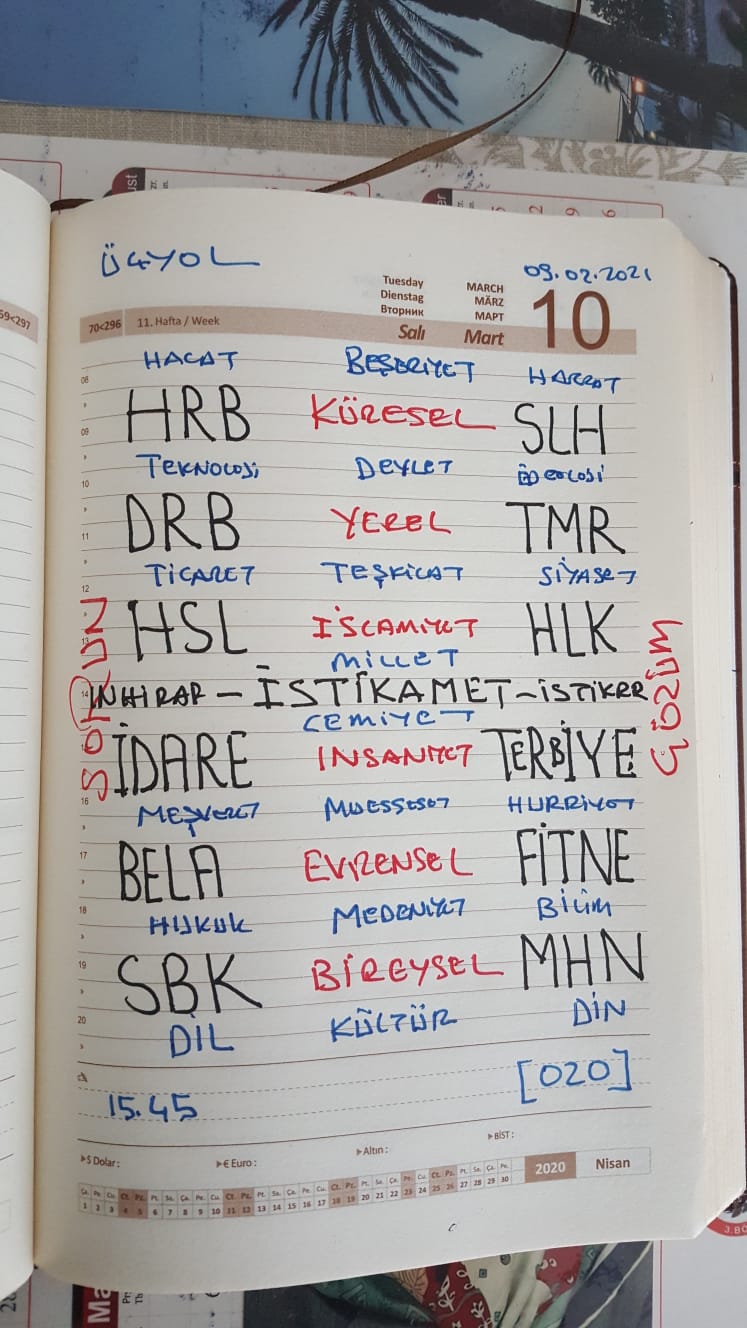 ÜÇYOL
09.02.2021
Tuesday MARCH
Dienstag MÄRZ
Вторник МАРТ
Salı Mart
10
59<297
70<296 11. Hafta / Week
HACAT BEŞERİYET
HRB KÜRESEL SLH
TEKNOLOJİ DEVLET İDEOLOJİ
DRB YEREL TMR
TİCARET TEŞKİLAT SİYASET
HSL İSLAMİYET HLK
MİLLET
SORUN
İNHİRAF - İSTİKAMET - İSTİKRAR
ÇÖZÜM
CEMİYET
İDARE INSANİYET TERBİYE
MEŞVERET MUESSESET HURRİYET
BELA EVRENSEL FİTNE
HUKUK MEDENİYET BİLİM
SBK BİREYSEL MHN
DİL KÜLTÜR DİN
15.45 [020]
08
09
10
11
12
13
14
16
17
18
19
20
$ Dolar : € Euro : Altın : BİST :
Ça. Pe. Cu. Ct. Pz. Pt. Sa. Ça. Pe. Cu. Ct. Pz. Pt. Sa. Ça. Pe. Cu. Ct. Pz. Pt. Sa. Ça. Pe. Cu. Ct. Pz. Pt. Sa. Ça. Pe.
1 2 3 4 5 6 7 8 9 10 11 12 13 14 15 16 17 18 19 20 21 22 23 24 25 26 27 28 29 30
2020 Nisan